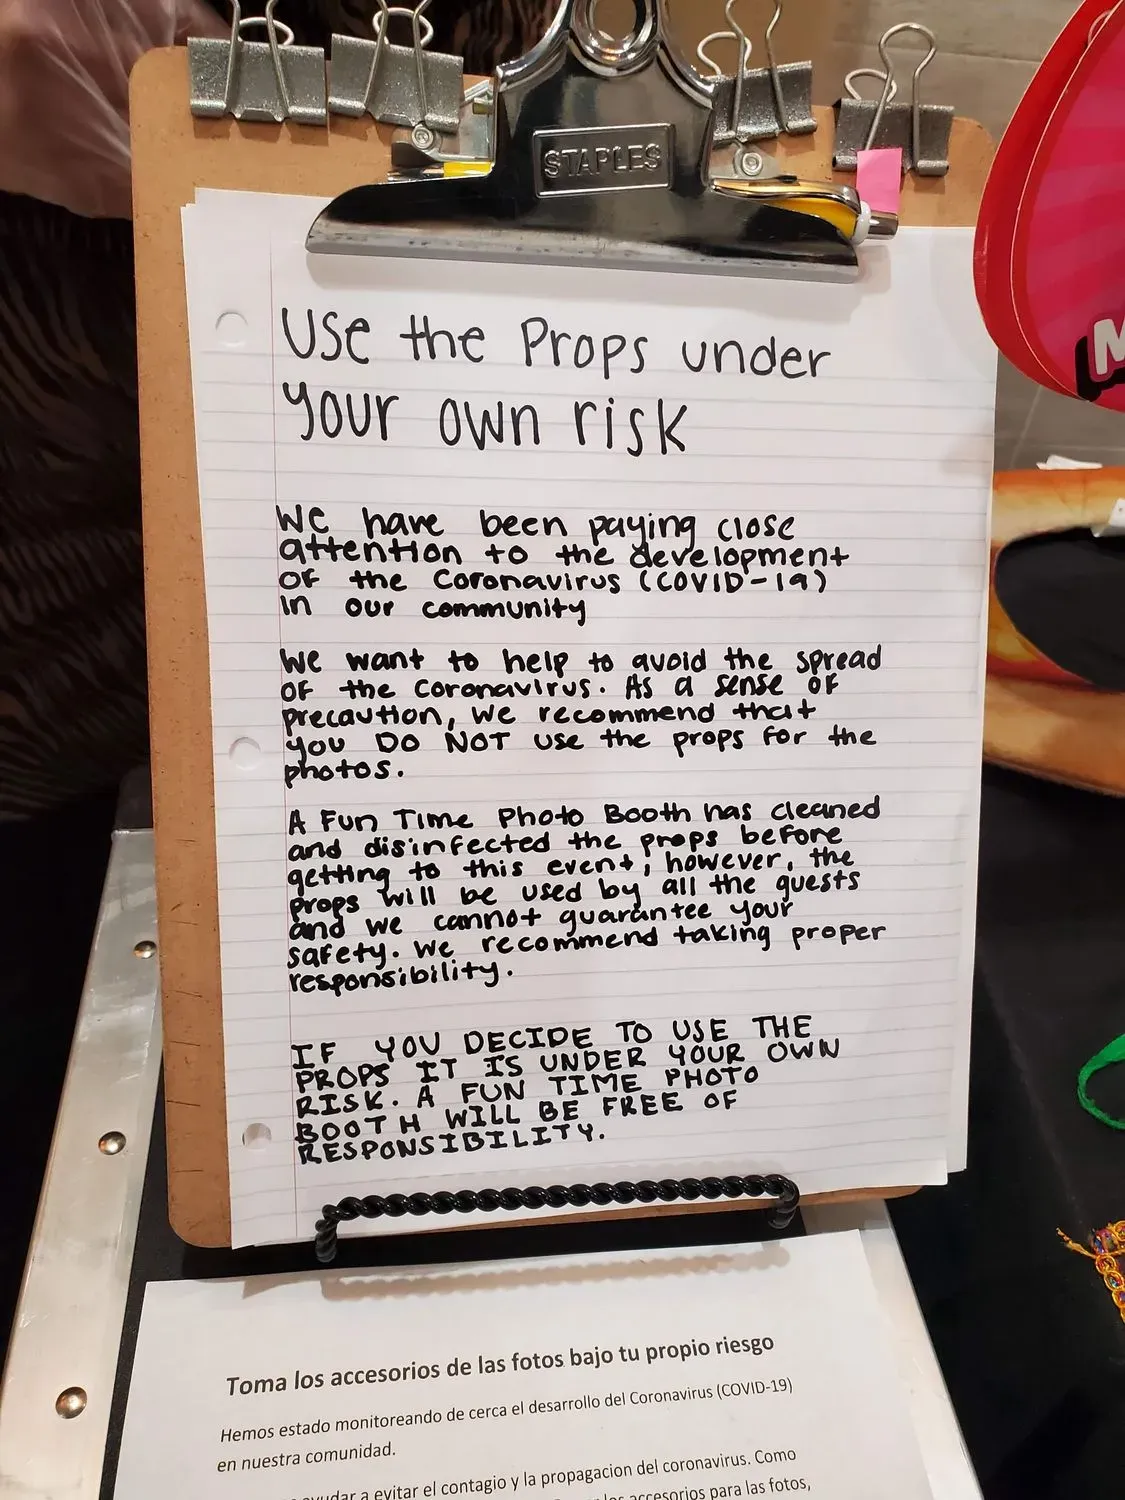 STAPLES
M
Use the Props under
your own risk
We have been paying close
attention to the development
of the Coronavirus (COVID-19)
in our community
We want to help to avoid the spread
of the coronavirus. As a sense of
precaution, we recommend that
you DO NOT use the props for the
photos.
A Fun Time Photo Booth has cleaned
and disinfected the props before
getting to this event, however, the
props will be used by all the guests
and we cannot guarantee your
safety. We recommend taking proper
responsibility.
IF YOU DECIDE TO USE THE
PROPS IT IS UNDER YOUR OWN
RISK. A FUN TIME PHOTO
BOOTH WILL BE FREE OF
RESPONSIBILITY.
Toma los accesorios de las fotos bajo tu propio riesgo
Hemos estado monitoreando de cerca el desarrollo del Coronavirus (COVID-19)
en nuestra comunidad.
a evitar el contagio y la propagacion del coronavirus. Como
accesorios para las fotos,